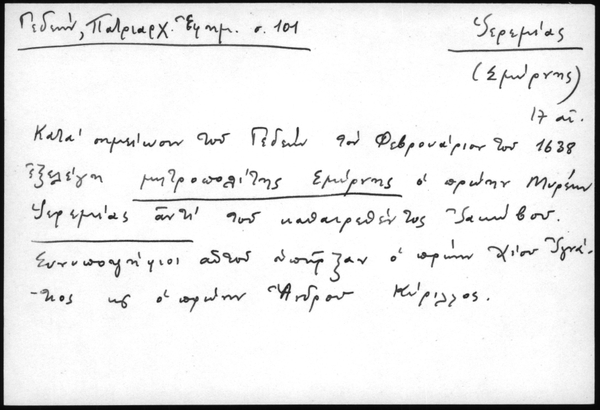 Γεδεών, Πατριαρχ. Ἐφημ. σ. 101
Ἱερεμίας
(Σμύρνης)
17 αἰ.
Κατά σημείωσιν τοῦ Γεδεών τόν Φεβρουάριον τοῦ 1638
ἐξελέγη μητροπολίτης Σμύρνης ὁ πρώην Μυρέων
Ἱερεμίας ἀντί τοῦ καθαιρεθέντος Ἰακώβου.
Συνυποψήφιοι αὐτοῦ ὑπῆρξαν ὁ πρώην Χίου Ἰγνά-
-τιος κ ὁ πρώην Ἄνδρου Κύριλλος.